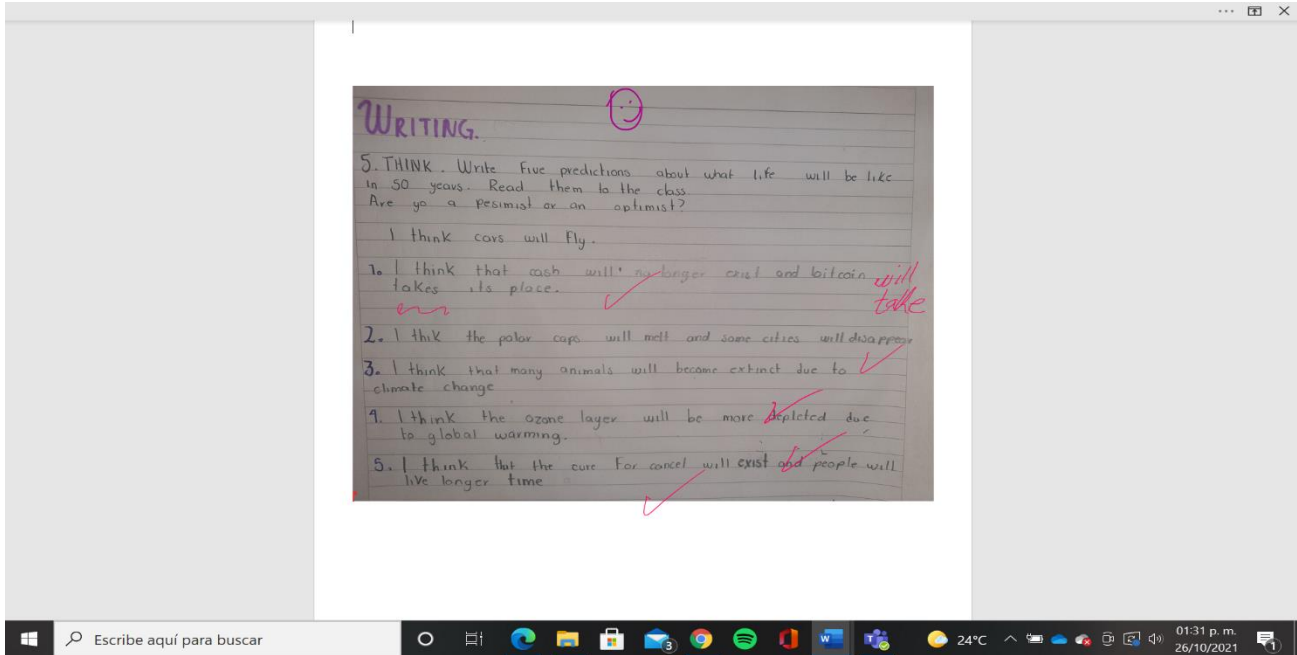 WRITING.
5. THINK. Write Five predictions about what life will be like
in 50 years. Read them to the class.
Are yo a pesimist or an optimist?
I think cars will Fly.
1. I think that cash will no longer exist and bitcoin will
takes its place. take
2. I thik the polar caps will melt and some cities will disappear
3. I think that many animals will become extinct due to
climate change
4. I think the ozone layer will be more depleted due
to global warming.
5. I think that the cure For cancel will exist and people will
live longer time
Escribe aquí para buscar
3
24°C
01:31 p. m.
26/10/2021
1